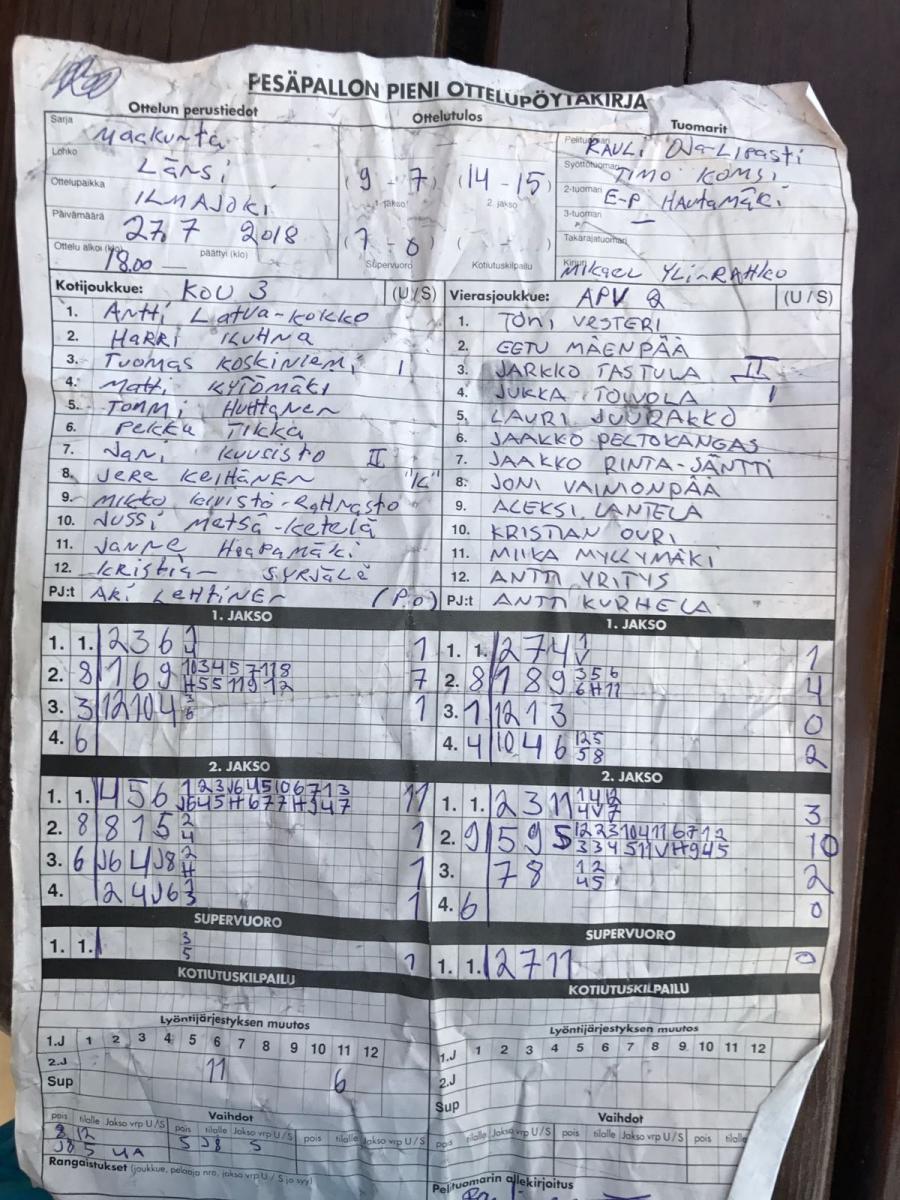 PESÄPALLON PIENI OTTELUPÖYTÄKIRJA
Ottelun perustiedot Ottelutulos Tuomarit
Sarja Maakunta
Lohko Länsi
Ottelupaikka ILMAJOKI
Päivämäärä 27.7 2018
Ottelu alkoi (klo) 18.00 päättyi (klo)
(9 - 7) 1. jakso (14 - 15) 2. jakso
(1 - 0) Supervuoro ( - ) Kotiutuskilpailu
Pelituomari RAULI OJA-LIPASTI
Syöttötuomari TIMO KOMSI
2-tuomari E-P HAUTAMÄKI
3-tuomari —
Takarajatuomari
Kirjuri MIKAEL YLI-RAHKO
Kotijoukkue: KOU 3 (U/S) Vierasjoukkue: APV 2 (U/S)
1. Antti Latva-Kokko
2. HARRI KUHNA
3. Tuomas Koskiniemi I
4. Matti KYTÖMÄKI
5. TOMMI Huhtanen
6. Pekka TIKKA
7. Jani Kuusisto II
8. Jere KEIHÄNEN "K"
9. Mikko
10. Jussi Metsä-Ketelä
11. Janne Haapamäki
12. Kristian SYRJÄLÄ
PJ:t AKI LEHTINEN (P.O)
1. TONI VESTERI
2. EETU MÄENPÄÄ
3. JARKKO TASTULA II
4. JUKKA TOIVOLA I
5. LAURI JUURAKKO
6. JAAKKO PELTOKANGAS
7. JAAKKO RINTA-JÄNTTI
8. JONI VAINIONPÄÄ
9. ALEKSI LANTELA
10. KRISTIAN OURI
11. MIIKA MYLLYMÄKI
12. ANTTI YRITYS
PJ:t ANTTI KURHELA
1. JAKSO
1. 1. 2 3 6 1
2. 8 1 6 9 7
3. 3 12 10 4 3 6 1
4. 6
1. JAKSO
1. 1. 2 7 4 1 V 1
2. 8 1 8 9 3 5 6 6 H 11 4
3. 1 12 1 3 0
4. 4 10 4 6 2
2. JAKSO
1. 1. 4 5 6 11
2. 8 8 1 5 2 4 1
3. 6 J6 4 J8 2 H 1
4. 2 4 J6 1
2. JAKSO
1. 1. 2 3 11 3
2. 9 5 9 5 10
3. 7 8 2
4. 6 0
SUPERVUORO
1. 1. 3 5 1
SUPERVUORO
1. 1. 2 7 11 0
KOTIUTUSKILPAILU
KOTIUTUSKILPAILU
Lyöntijärjestyksen muutos
1.J 1 2 3 4 5 6 7 8 9 10 11 12
2.J 11 6
Sup
Lyöntijärjestyksen muutos
1.J 1 2 3 4 5 6 7 8 9 10 11 12
2.J
Sup
Vaihdot
pois tilalle Jakso vrp U/S pois tilalle Jakso vrp U/S pois tilalle Jakso vrp U/S
J8 5 4A 5 J8 S
Vaihdot
pois tilalle Jakso vrp U/S pois tilalle Jakso vrp U/S pois tilalle
Rangaistukset (joukkue, pelaaja nro, jakso vrp U / S ja syy)
Pelituomarin allekirjoitus